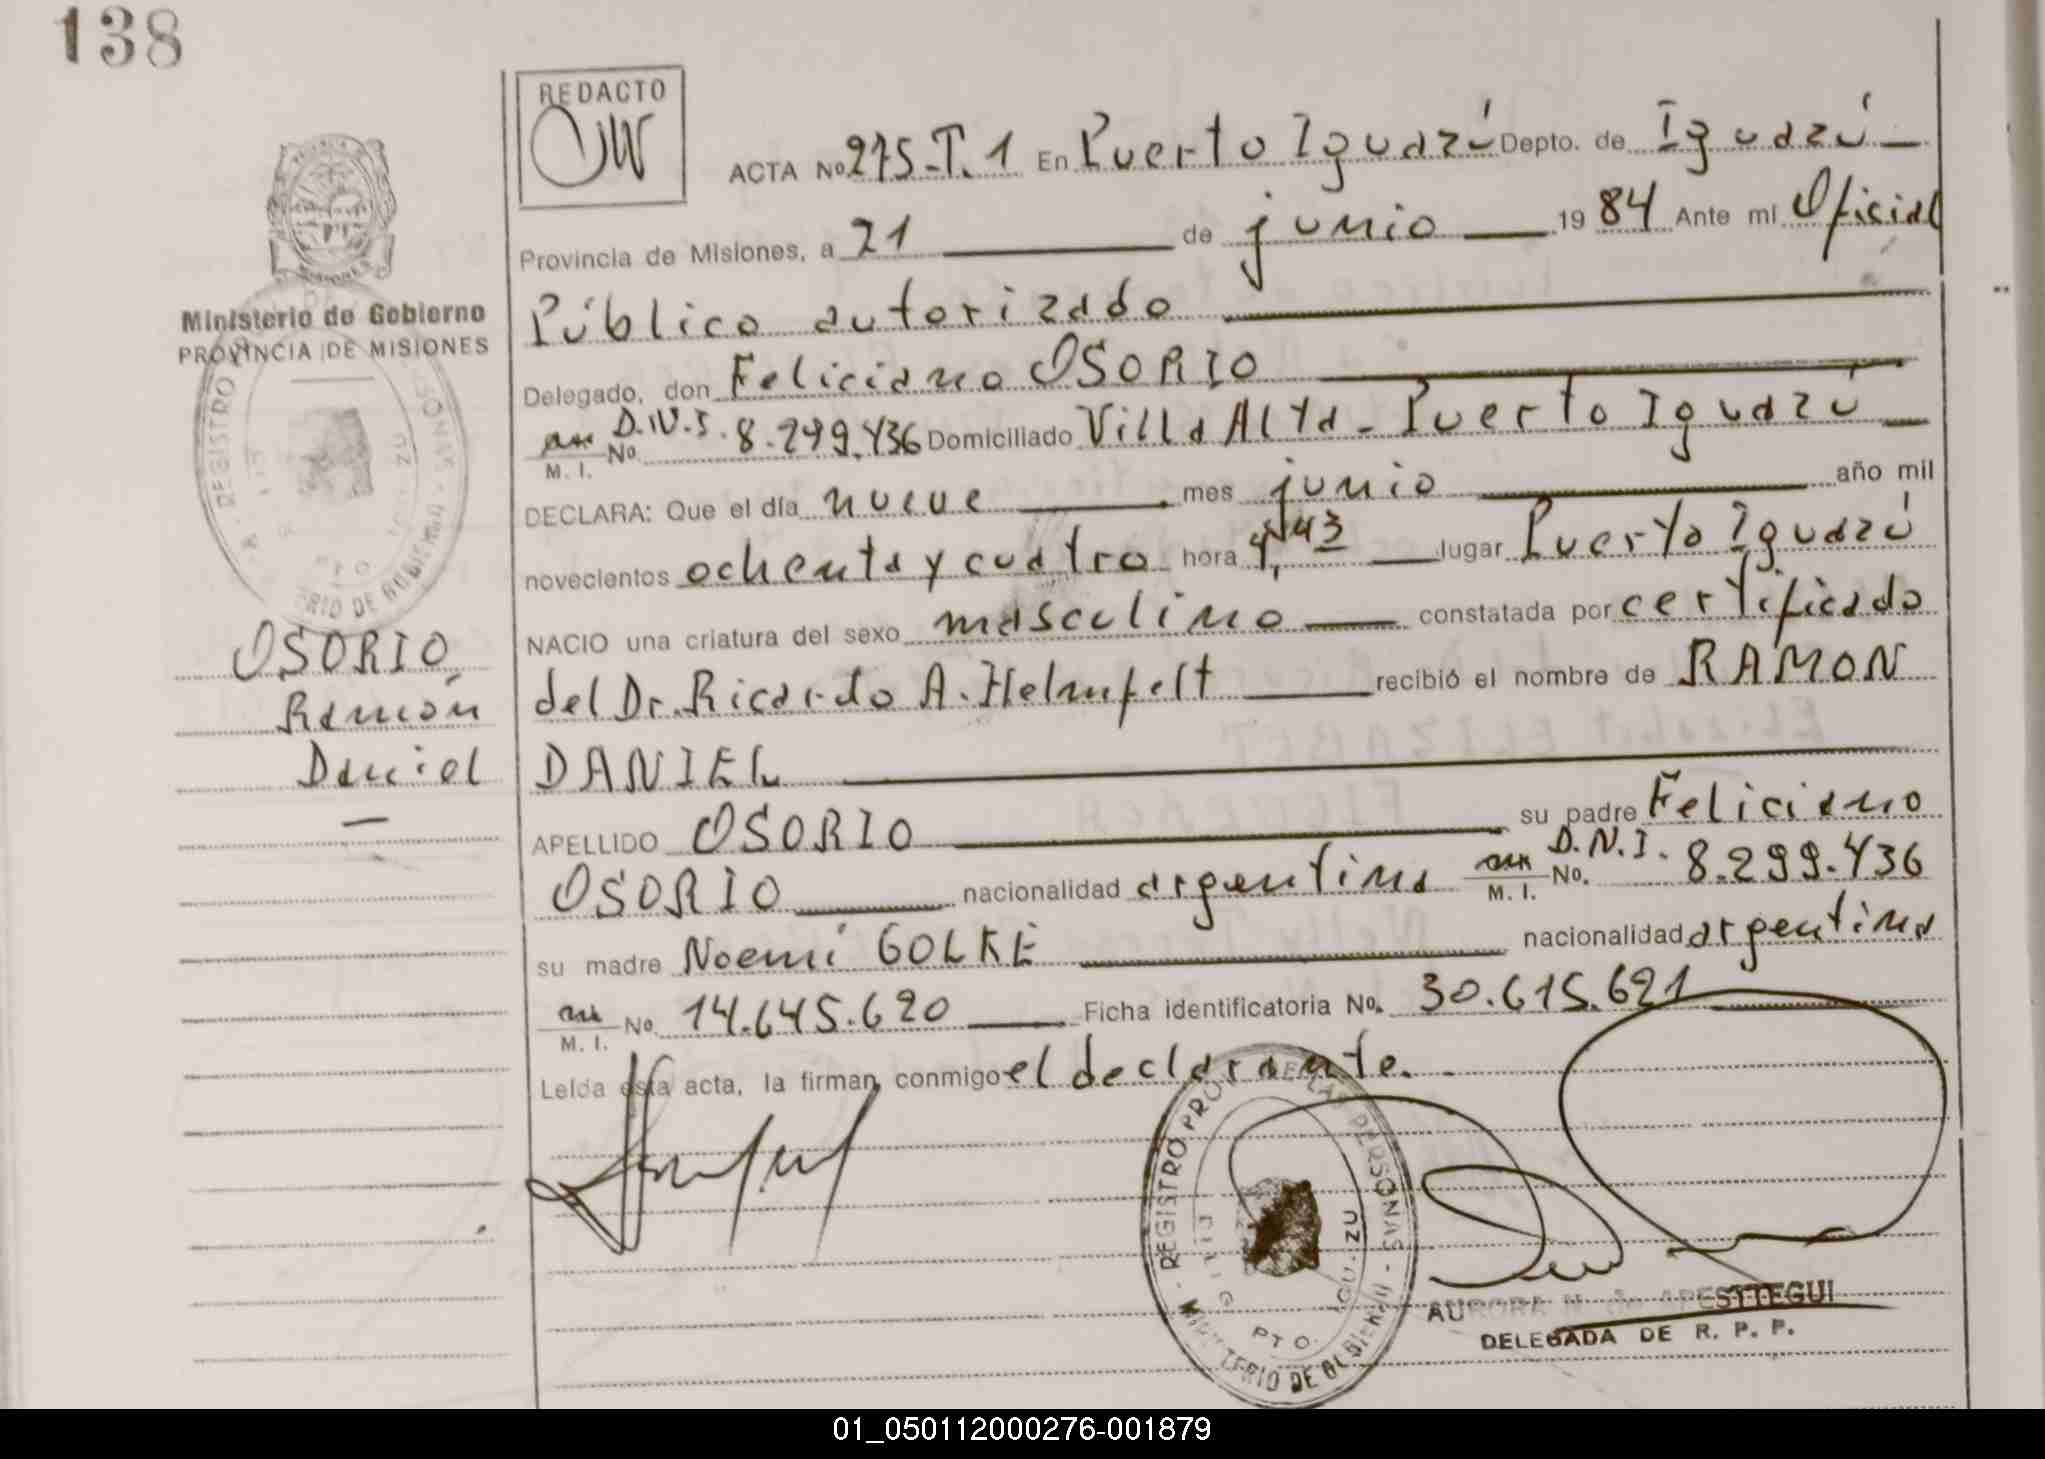 138
REDACTO
ACTA Nº 275-T.1 En Puerto Iguazú Depto. de Iguazú
Provincia de Misiones, a 21 de junio 1984 Ante mi Oficial
Público autorizado
Delegado, don Feliciano OSORIO
M. I. No. D.N.I. 8.299.436 Domiciliado Villa Alta - Puerto Iguazú
DECLARA: Que el día nueve mes junio año mil
novecientos ochenta y cuatro hora 4,43 lugar Puerto Iguazú
NACIO una criatura del sexo masculino constatada por certificado
del Dr. Ricardo A. Helmfelt recibió el nombre de RAMON
DANIEL
APELLIDO OSORIO su padre Feliciano
OSORIO nacionalidad argentina M. I. No. D.N.I. 8.299.436
su madre Noemí GOLKE nacionalidad argentina
M. I. No. 14.645.620 Ficha identificatoria No. 30.615.621
Leída esta acta, la firman conmigo el declarante.
Ministerio de Gobierno
PROVINCIA DE MISIONES
OSORIO
Ramón
Daniel
REGISTRO PROV. DE LAS PERSONAS
MINISTERIO DE GOBIERNO
PTO. IGUAZU
AURORA N. de APESTTEGUI
DELEGADA DE R. P. P.
01_050112000276-001879